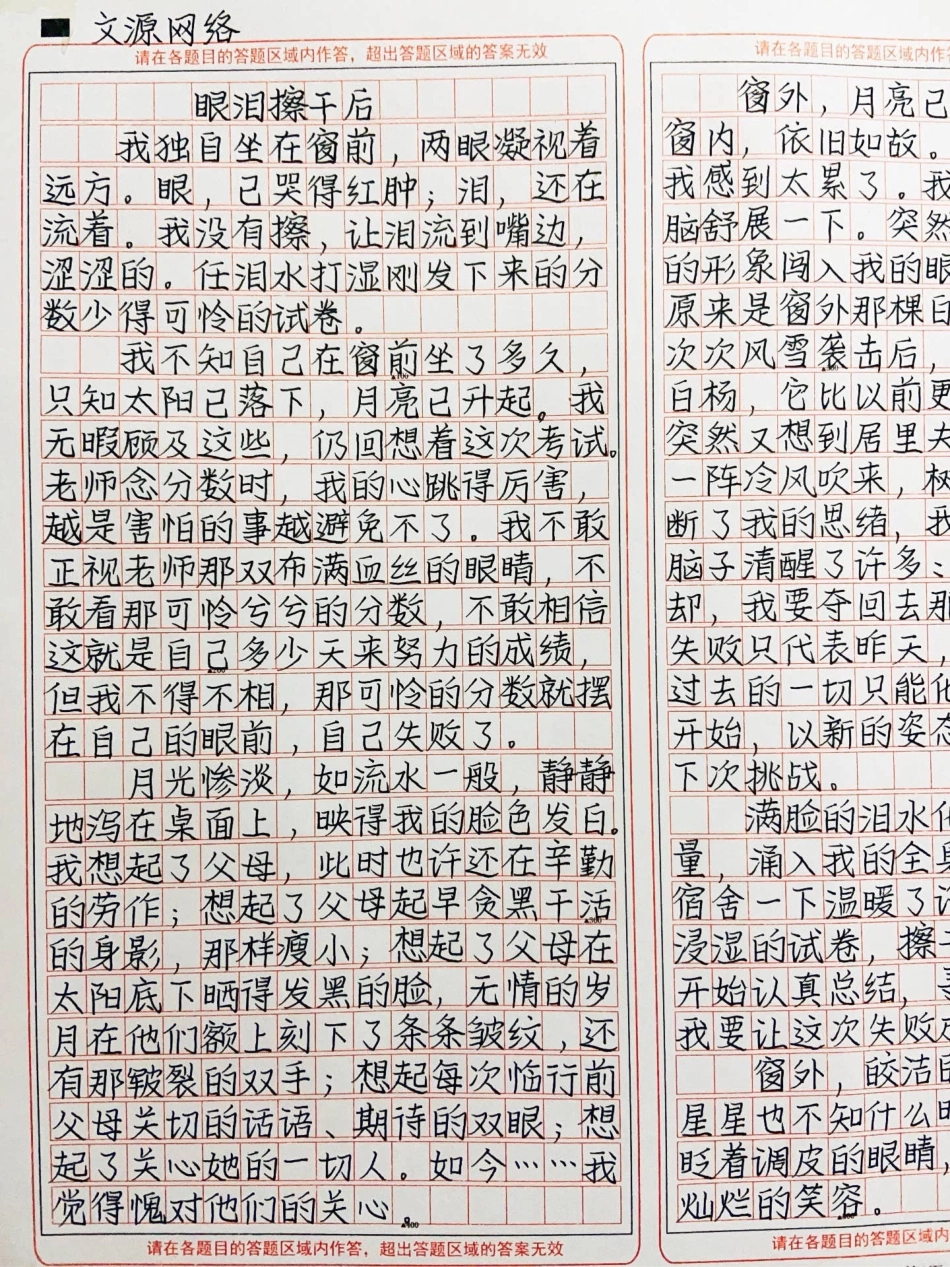 文源网络
请在各题目的答题区域内作答，超出答题区域的答案无效
眼泪擦干后
我独自坐在窗前，两眼凝视着
远方。眼，已哭得红肿；泪，还在
流着。我没有擦，让泪流到嘴边，
涩涩的。任泪水打湿刚发下来的分
数少得可怜的试卷。
我不知自己在窗前坐了多久，
只知太阳已落下，月亮已升起。我
无暇顾及这些，仍回想着这次考试。
老师念分数时，我的心跳得厉害，
越是害怕的事越避免不了。我不敢
正视老师那双布满血丝的眼睛，不
敢看那可怜兮兮的分数，不敢相信
这就是自己多少天来努力的成绩，
但我不得不相，那可怜的分数就摆
在自己的眼前，自己失败了。
月光惨淡，如流水一般，静静
地泻在桌面上，映得我的脸色发白。
我想起了父母，此时也许还在辛勤
的劳作；想起了父母起早贪黑干活
的身影，那样瘦小；想起了父母在
太阳底下晒得发黑的脸，无情的岁
月在他们额上刻下了条条皱纹，还
有那皲裂的双手；想起每次临行前
父母关切的话语、期待的双眼；想
起了关心她的一切人。如今……我
觉得愧对他们的关心。
请在各题目的答题区域内作答，超出答题区域的答案无效
请在各题目的答题区域内作
窗外，月亮已
窗内，依旧如故。
我感到太累了。我
脑舒展一下。突然
的形象闯入我的眼
原来是窗外那棵白
次次风雪袭击后，
白杨，它比以前更
突然又想到居里夫
一阵冷风吹来，树
断了我的思绪，我
脑子清醒了许多：
却，我要夺回去那
失败只代表昨天，
过去的一切只能
开始，以新的姿态
下次挑战。
满脸的泪水化
量，涌入我的全身
宿舍一下温暖了许
浸湿的试卷，擦干
开始认真总结，
我要让这次失败
窗外，皎洁的
星星也不知什么时
眨着调皮的眼睛，
灿烂的笑容。
请在各题目的答题区域内